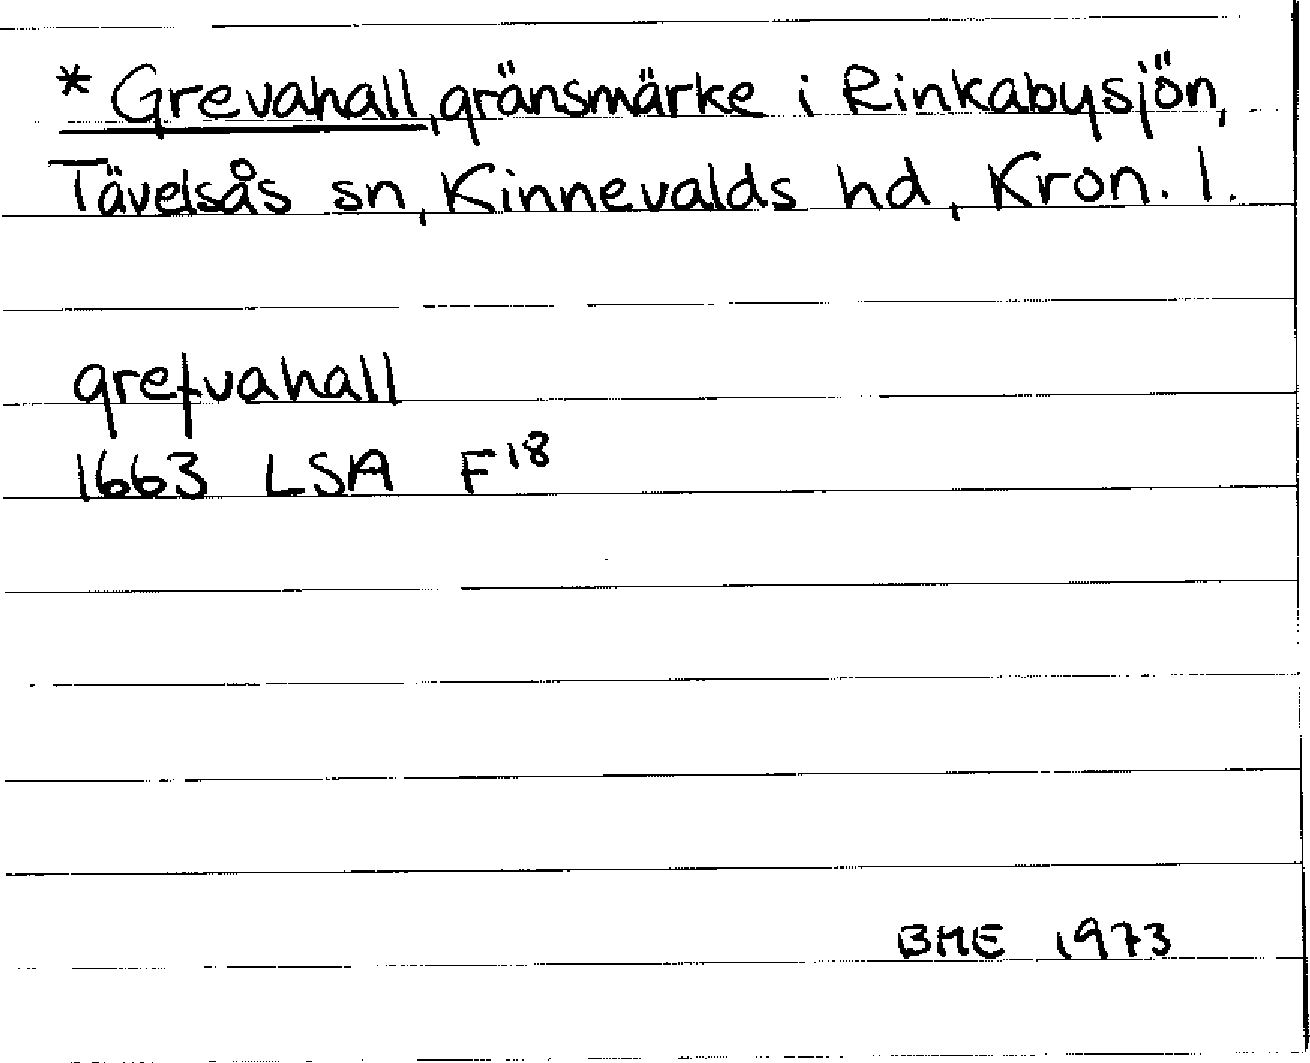 * Grevahall, gränsmärke i Rinkabysjön,
Tävelsås sn, Kinnevalds hd, Kron. l.
grefvahall
1663 LSA F18
BME 1973